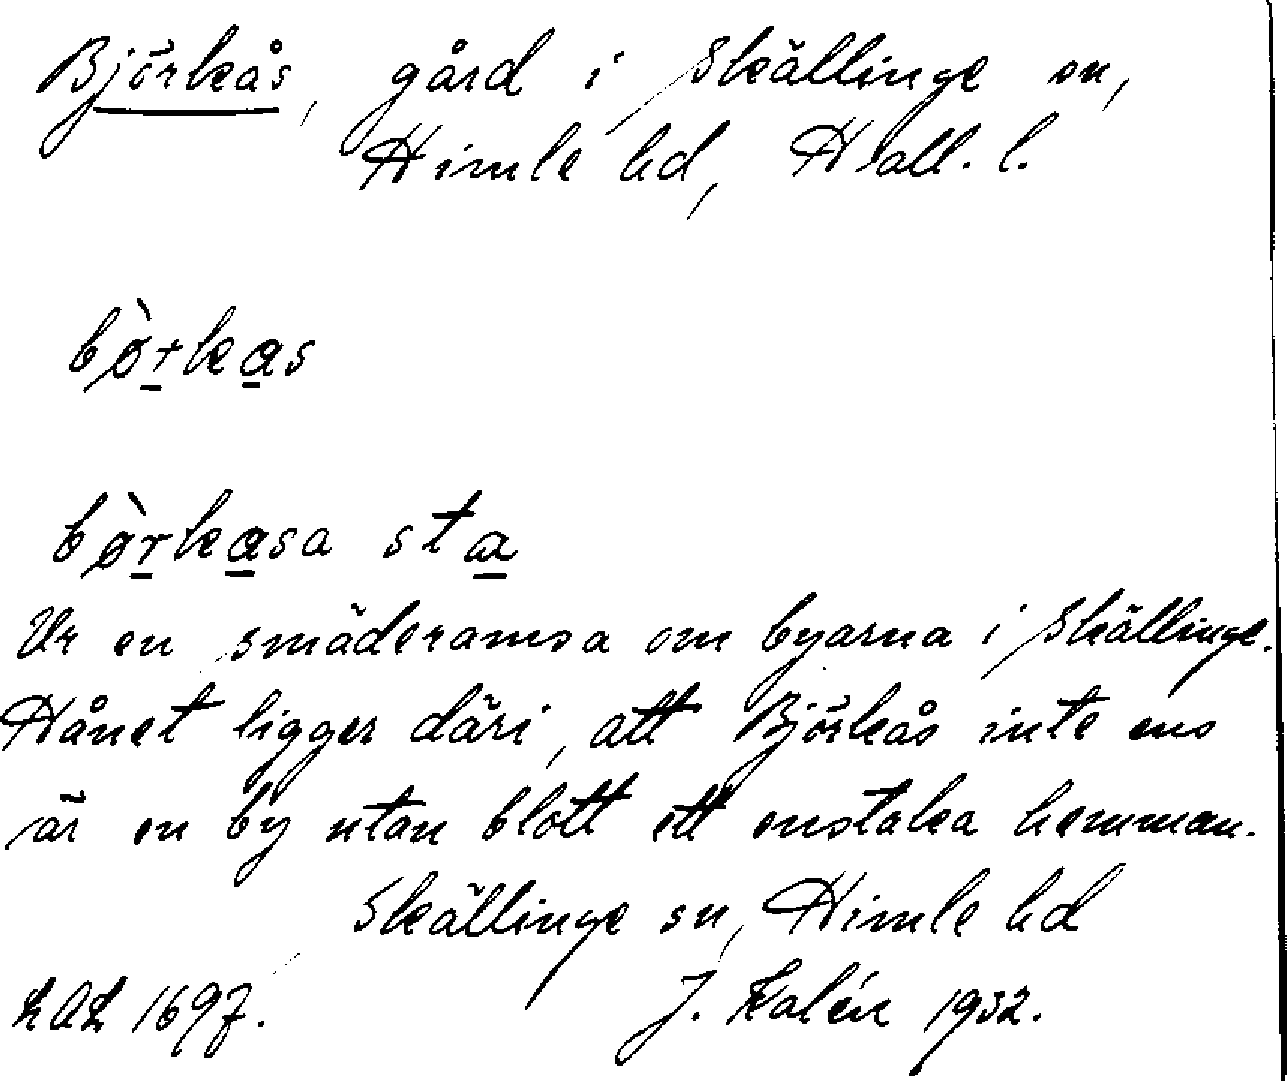 Björkås, gård i Skällinge sn,
Himle hd, Hall. l.
bø̀rkas
bø̀rkasa sta
Ur en smäderamsa om byarna i Skällinge.
Hånet ligger däri, att Björkås inte ens
är en by utan blott ett enstaka hemman.
Skällinge sn, Himle hd
LAL 1697.
J. Kalén 1932.